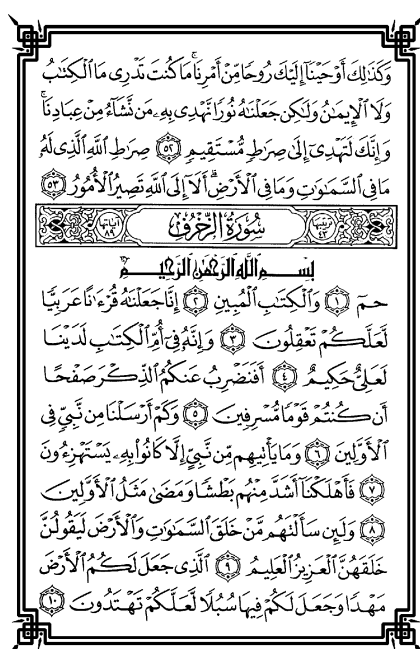 وَكَذَٰلِكَ أَوْحَيْنَآ إِلَيْكَ رُوحًا مِّنْ أَمْرِنَا ۚ مَا كُنتَ تَدْرِى مَا ٱلْكِتَٰبُ
وَلَا ٱلْإِيمَٰنُ وَلَٰكِن جَعَلْنَٰهُ نُورًا نَّهْدِى بِهِۦ مَن نَّشَآءُ مِنْ عِبَادِنَا ۚ
وَإِنَّكَ لَتَهْدِىٓ إِلَىٰ صِرَٰطٍ مُّسْتَقِيمٍ ٥٢ صِرَٰطِ ٱللَّهِ ٱلَّذِى لَهُۥ
مَا فِى ٱلسَّمَٰوَٰتِ وَمَا فِى ٱلْأَرْضِ ۗ أَلَآ إِلَى ٱللَّهِ تَصِيرُ ٱلْأُمُورُ ٥٣
سُورَةُ ٱلزُّخْرُفِ
بِسْمِ ٱللَّهِ ٱلرَّحْمَٰنِ ٱلرَّحِيمِ
حمٓ ١ وَٱلْكِتَٰبِ ٱلْمُبِينِ ٢ إِنَّا جَعَلْنَٰهُ قُرْءَٰنًا عَرَبِيًّا
لَّعَلَّكُمْ تَعْقِلُونَ ٣ وَإِنَّهُۥ فِىٓ أُمِّ ٱلْكِتَٰبِ لَدَيْنَا
لَعَلِىٌّ حَكِيمٌ ٤ أَفَنَضْرِبُ عَنكُمُ ٱلذِّكْرَ صَفْحًا
أَن كُنتُمْ قَوْمًا مُّسْرِفِينَ ٥ وَكَمْ أَرْسَلْنَا مِن نَّبِىٍّ فِى
ٱلْأَوَّلِينَ ٦ وَمَا يَأْتِيهِم مِّن نَّبِىٍّ إِلَّا كَانُوا۟ بِهِۦ يَسْتَهْزِءُونَ
٧ فَأَهْلَكْنَآ أَشَدَّ مِنْهُم بَطْشًا وَمَضَىٰ مَثَلُ ٱلْأَوَّلِينَ
٨ وَلَئِن سَأَلْتَهُم مَّنْ خَلَقَ ٱلسَّمَٰوَٰتِ وَٱلْأَرْضَ لَيَقُولُنَّ
خَلَقَهُنَّ ٱلْعَزِيزُ ٱلْعَلِيمُ ٩ ٱلَّذِى جَعَلَ لَكُمُ ٱلْأَرْضَ
مَهْدًا وَجَعَلَ لَكُمْ فِيهَا سُبُلًا لَّعَلَّكُمْ تَهْتَدُونَ ١٠